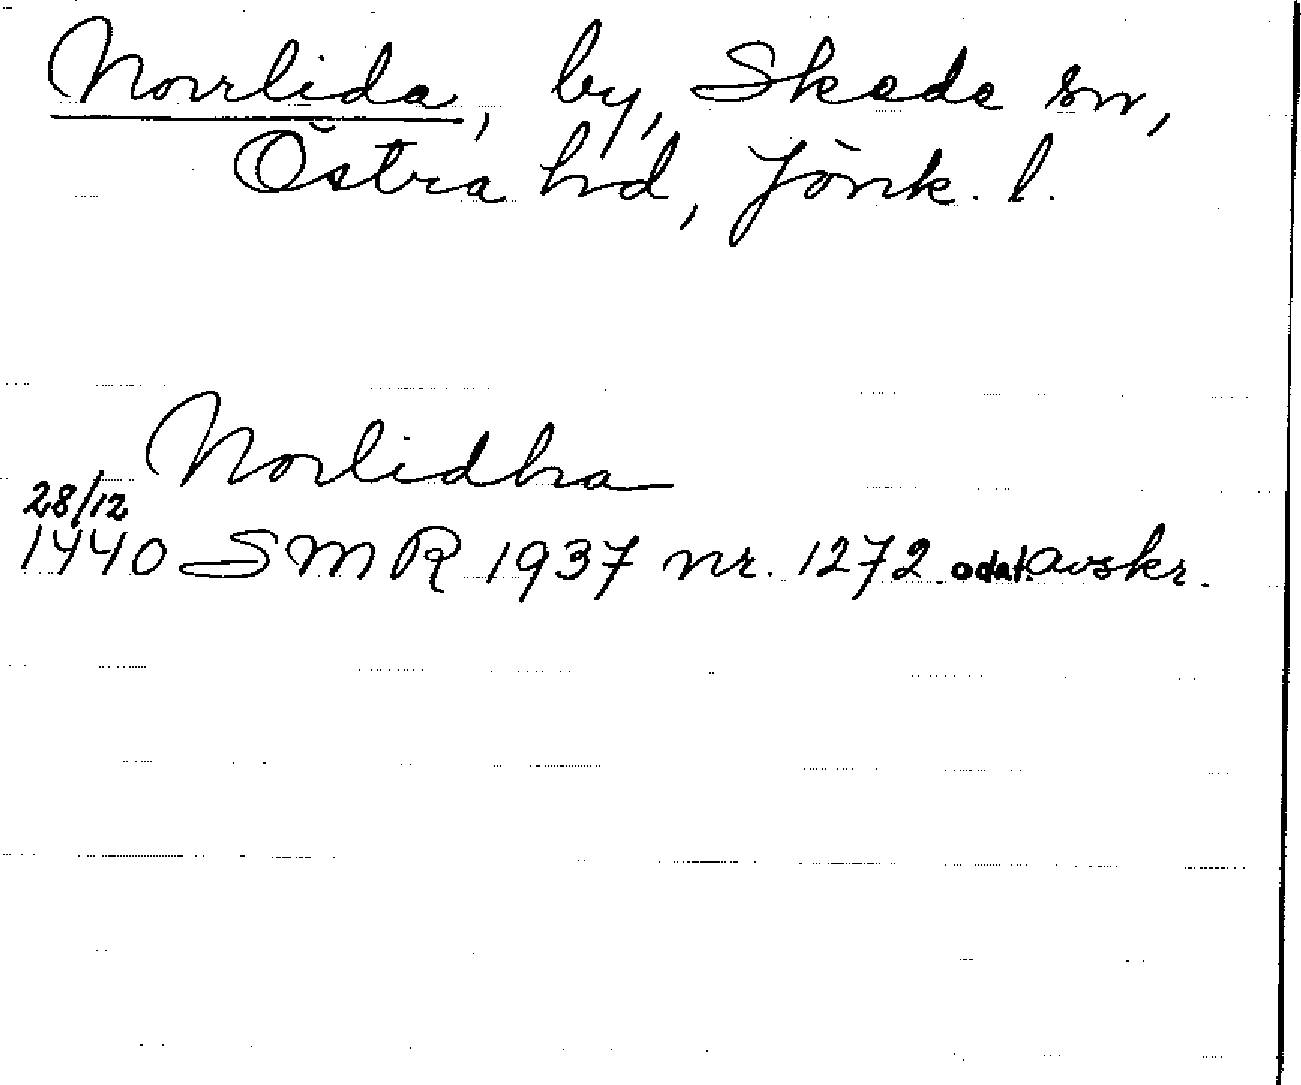 Norrlida, by, Skede sn,
Östra hd, Jönk. l.
Norlidha
28/12
1440 SMR 1937 nr. 1272 odat. avskr.